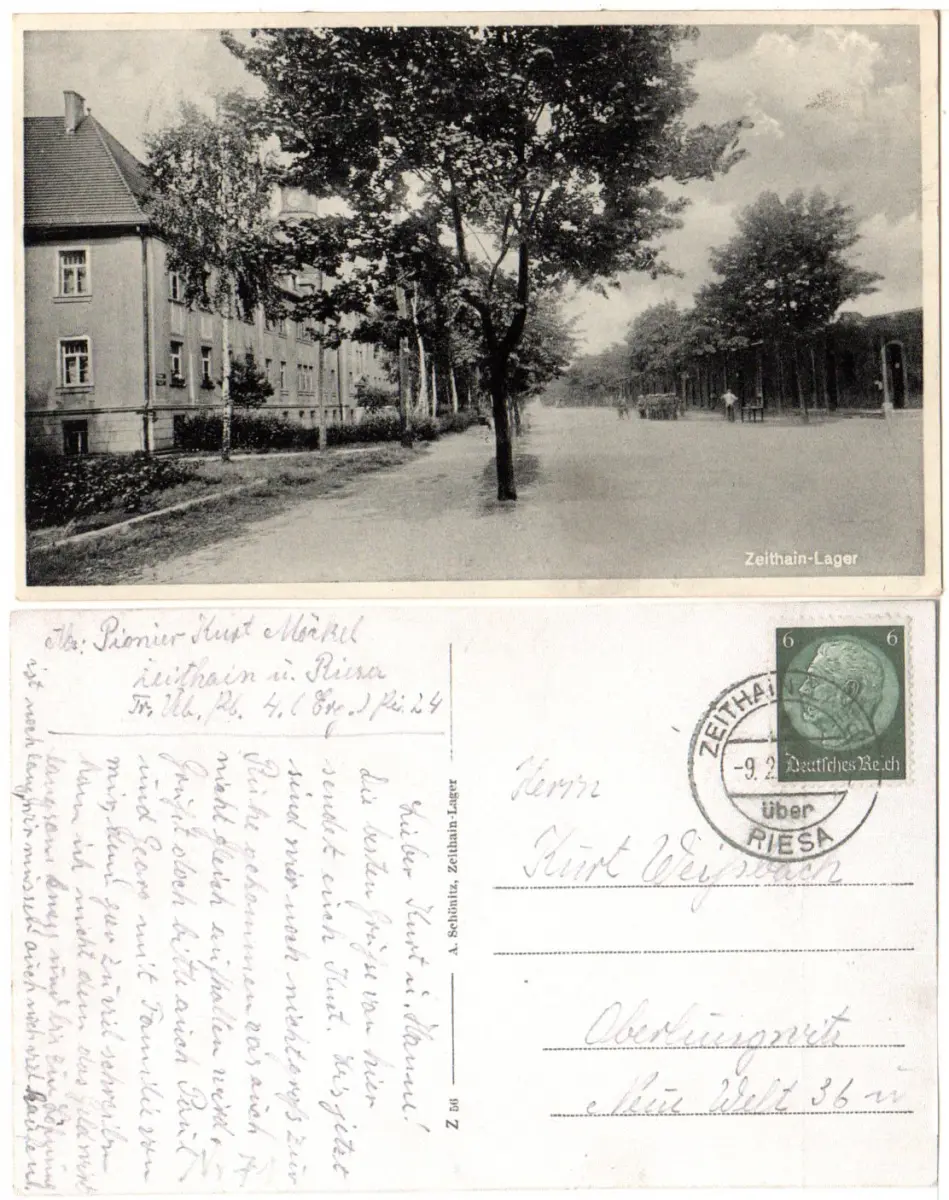 Zeithain-Lager
Abs: Pionier Kurt Möckel
Zeithain ü. Riesa
Tr. Üb. Pl. 4. (Erg.) Pi. 24
Lieber Kurt u. Hanni!
Die besten Grüße von hier
sendet euch Kurt. Bis jetzt
sind wir noch nicht groß zur
Ruhe gekommen was auch
nicht gleich aufhören wird.
Grüßt doch bitte auch Paul
und mit Familie von
mir, denn gar zu viel schreiben
kann ich nicht denn das Geld wird
langsam knapp und bis zur Löhnung
ist noch lang, wir müssen auch noch viel kaufen.
A. Schönitz, Zeithain-Lager
Z 56
6 6
Deutsches Reich
ZEITHAIN
-9. 2.
über
RIESA
Herrn
Kurt Weißbach
Oberlungwitz
Neue Welt 36 u